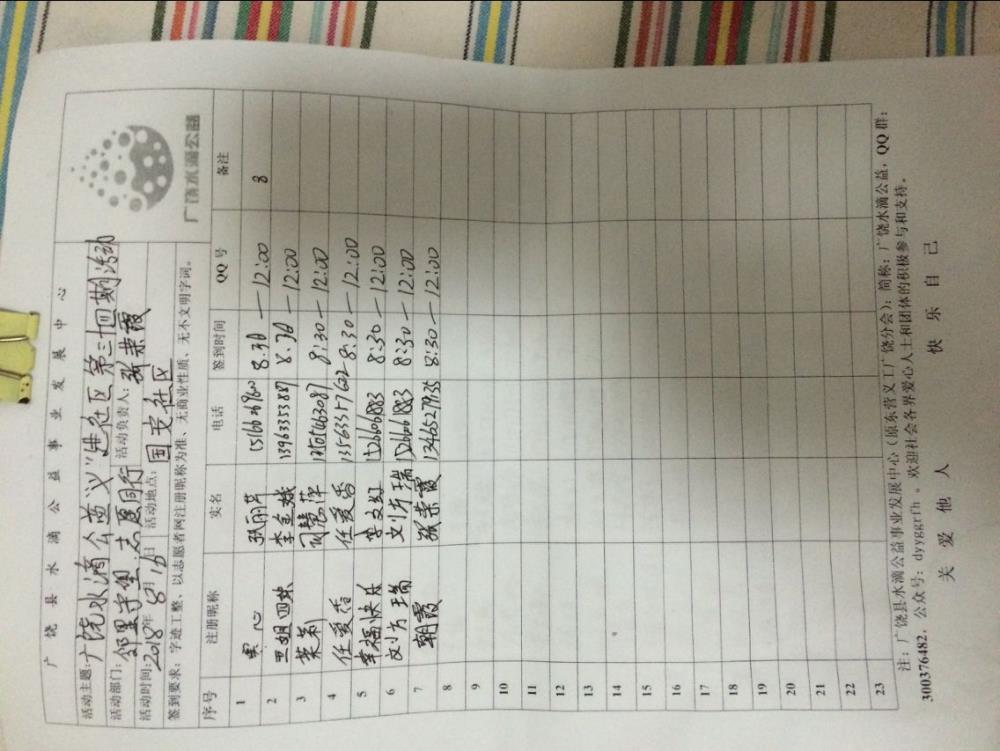 广饶县水滴公益事业发展中心
广饶水滴公益
活动主题:广饶水滴公益"进社区第三十四期活动
活动部门:邻里守望.志愿同行 活动负责人:张荣霞
活动时间:2018年8月16日 活动地点:国安社区
签到要求:字迹工整、以志愿者网注册昵称为准、无商业性质、无不文明字词。
序号 注册昵称 实名 电话 签到时间 QQ 号 备注
1 心 张丽芹 8.30 — 12:00 8
2 李金娥 13963353887 8.30 — 12:00
3 茉莉 8:30 — 12:00
4 任爱香 任爱香 13563357622 8:30 — 12:00
5 幸福快乐 8:30 — 12:00
6 刘芳瑞 刘芳瑞 8:30 — 12:00
7 朝霞 张荣霞 13465279135 8:30 — 12:00
8
9
10
11
12
13
14
15
16
17
18
19
20
21
22
23
注:广饶县水滴公益事业发展中心(原东营义工广饶分会):简称:广饶水滴公益,QQ 群:
300376482,公众号:dyyggrfh 。欢迎社会各界爱心人士和团体的积极参与和支持。
关爱他人 快乐自己